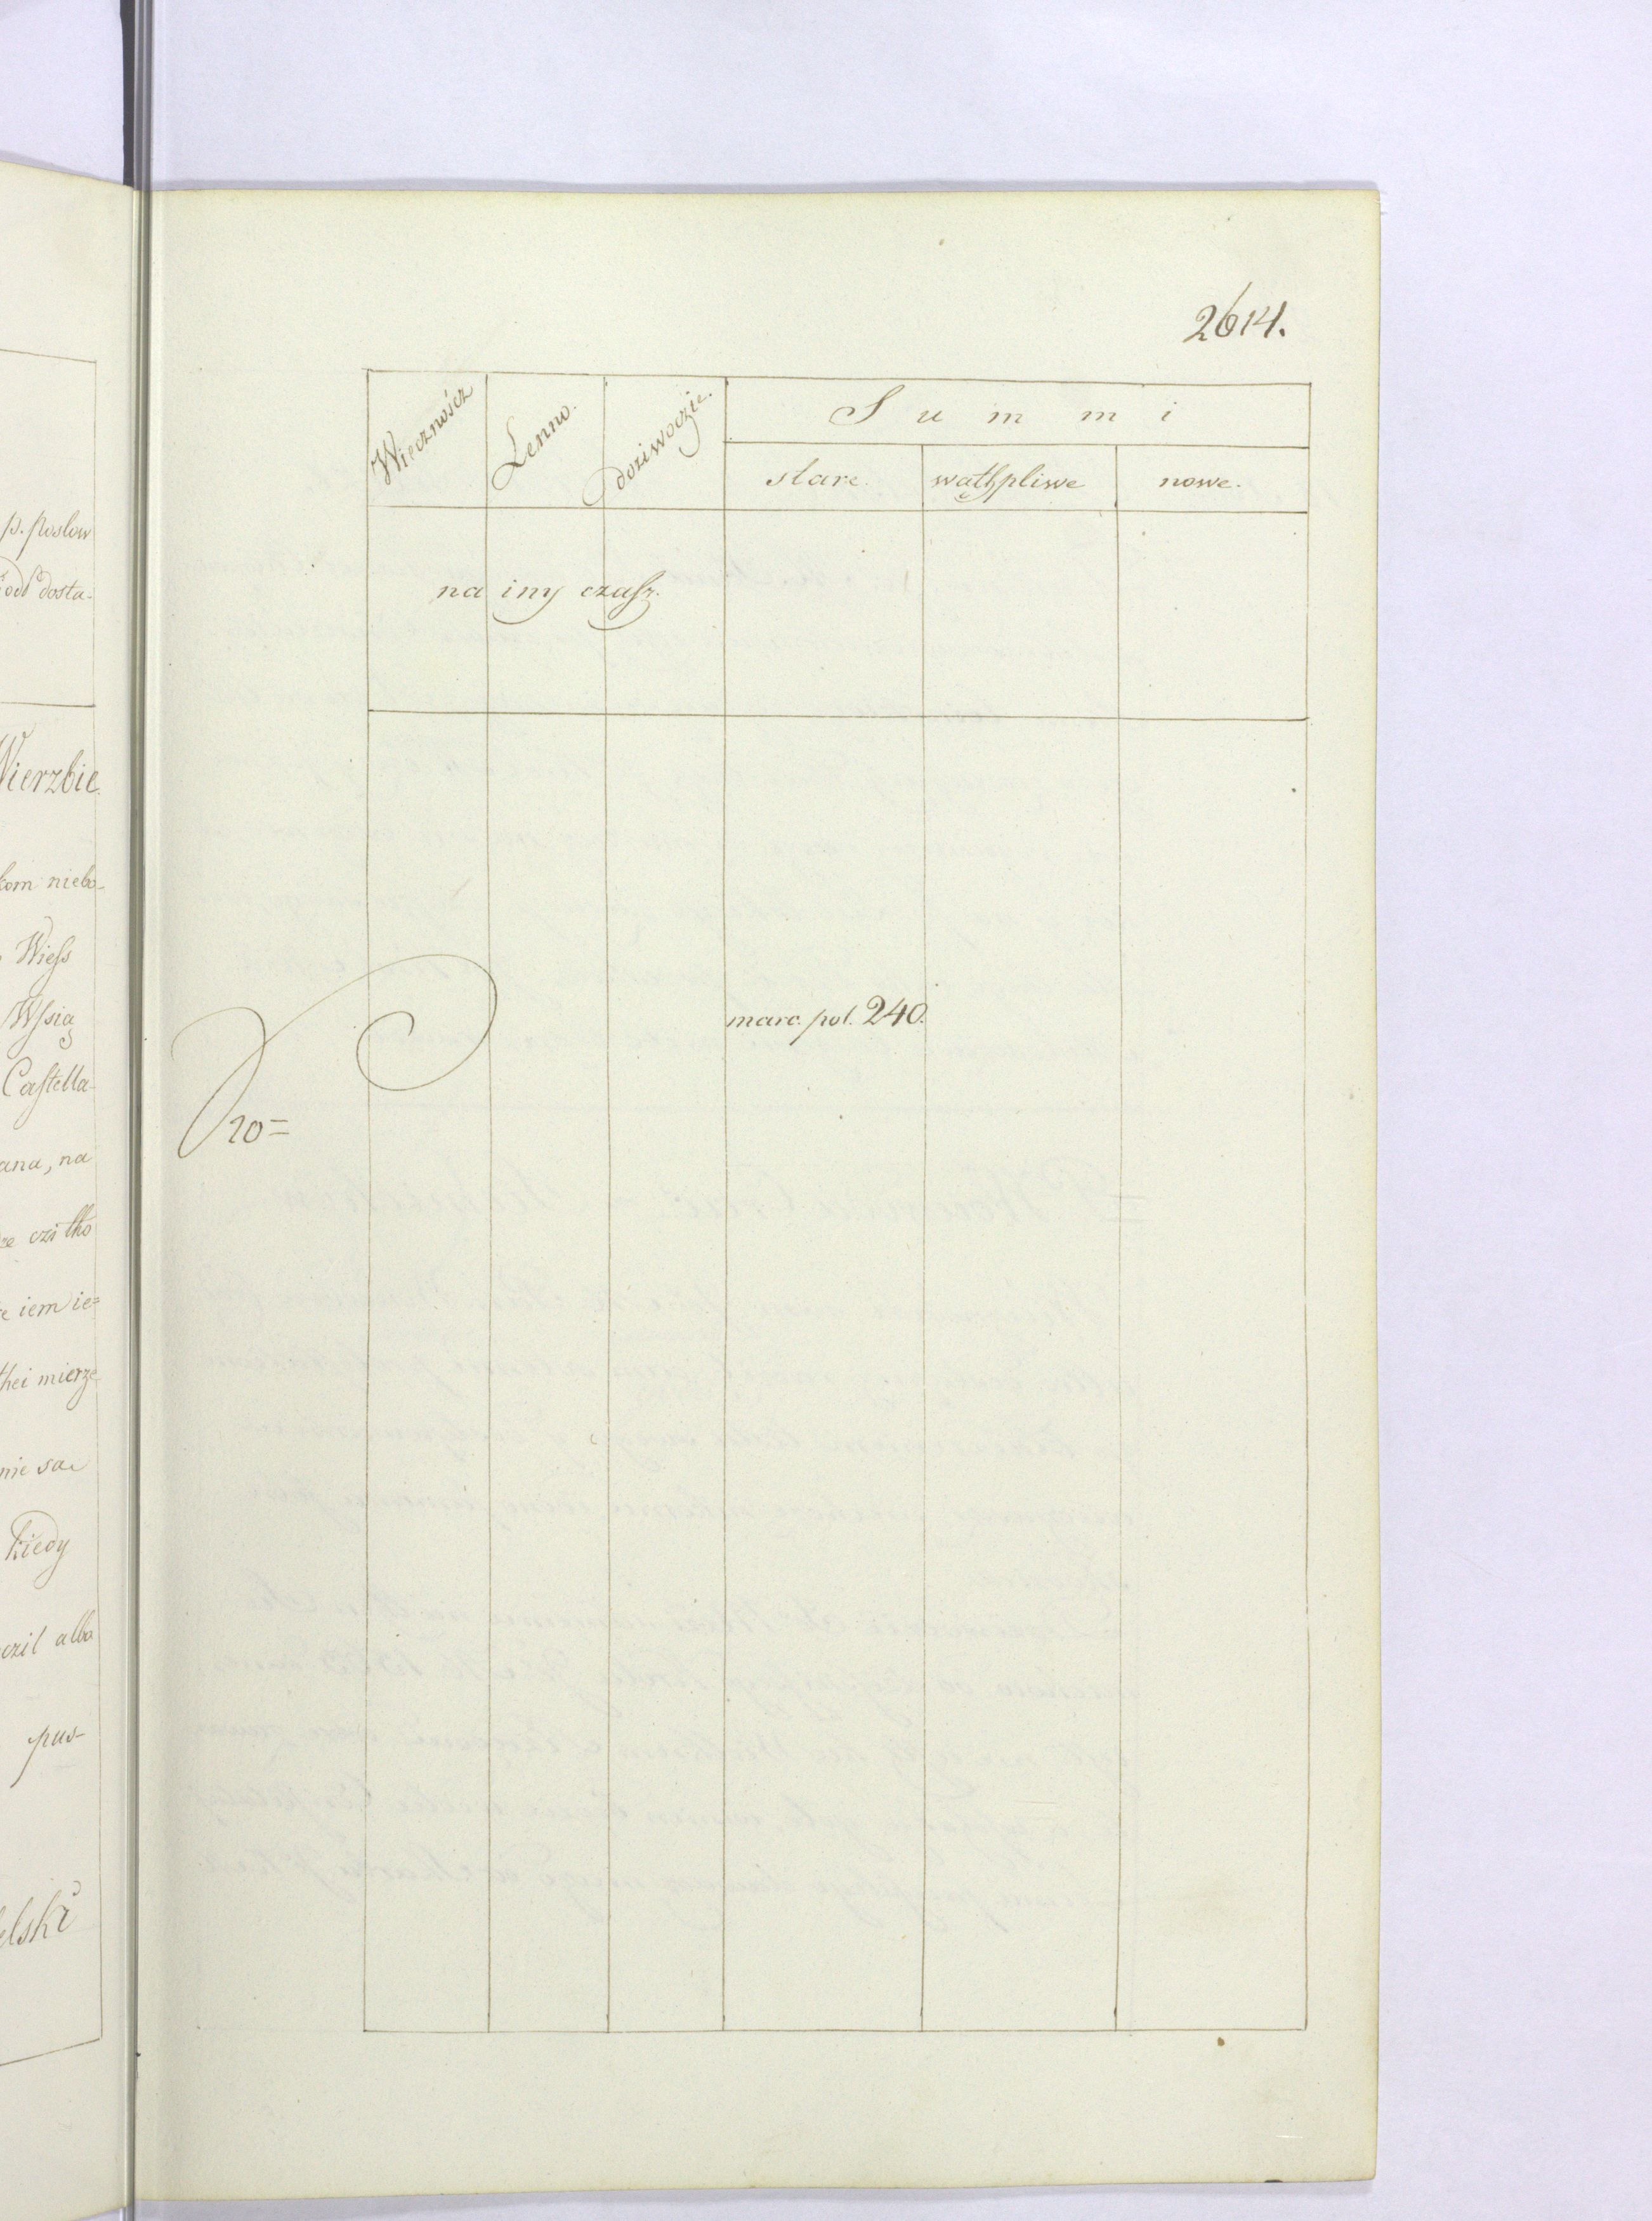 p. posłow
dosta-
Wierzbie.
kom niebo-
Wiess
Wssią
Castella-
ana, na
czitko
iem ie=
thei mierze
nie są
kiedy
czil albo
pus-
elski
2614.
Wieczność Lenno. dożiwoczie. Summi
stare. wathpliwe nowe.
na iny czasz.
marc. pol. 240.